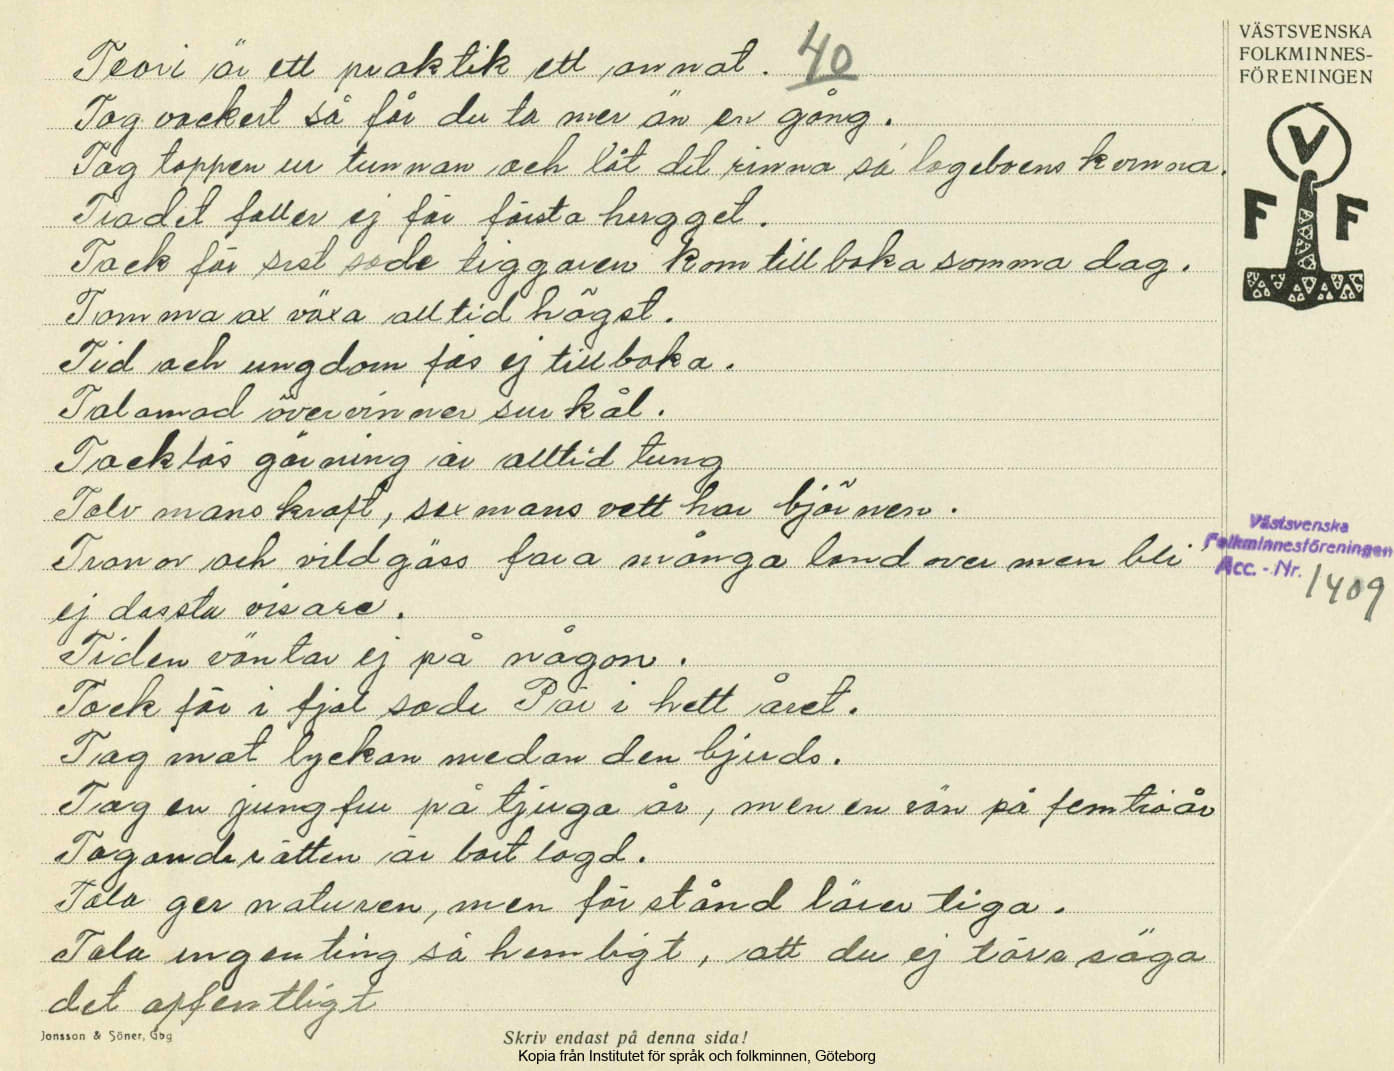 40
VÄSTSVENSKA
FOLKMINNES-
FÖRENINGEN
V
F F
Teori är ett praktik ett annat.
Tag vackert så får du ta mer än en gång.
Tag tappen ur tunnan och låt det rinna sa' lageboens kvinna.
Trädet faller ej för första hugget.
Tack för sist sade tiggaren kom tillbaka samma dag.
Tomma ax växa alltid högst.
Tid och ungdom fås ej tillbaka.
Talamod övervinner surkål.
Tacklös gärning är alltid tung
Tolv mans kraft, sexmans vett har björnen.
Tranor och vildgäss fara många land over men bli
ej dessto visare.
Tiden väntar ej på någon.
Tack för i fjol sade Pär i hett året.
Tag mot lyckan medan den bjuds.
Tag en jungfru på tjugo år, men en vän på femtioår
Tagande rätten är bort lagd.
Tala ger naturen, men förstånd lärer tiga.
Tala ingenting så hemligt, att du ej törs säga
det offentligt
Västsvenska
Folkminnesföreningen
Acc. - Nr. 1409
Jonsson & Söner, Gbg
Skriv endast på denna sida!
Kopia från Institutet för språk och folkminnen, Göteborg